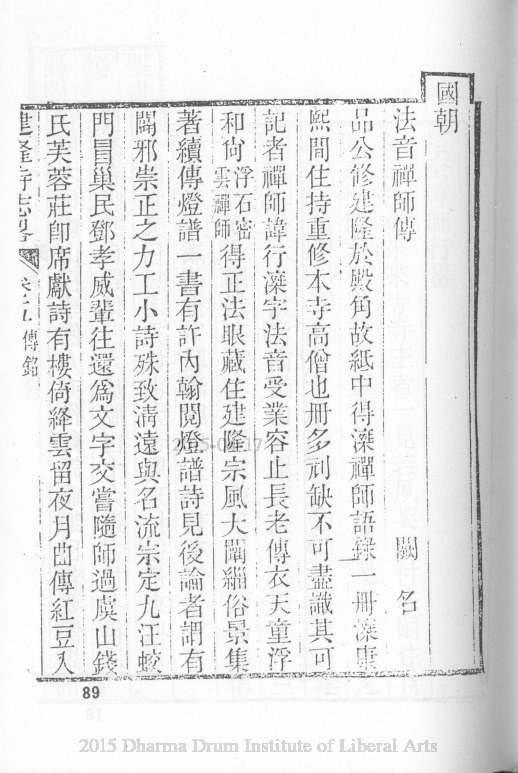 國朝
法音禪師傳　闕名
品公修建隆於殿角故紙中得濴禪師語錄一冊濴康
熙間住持重修本寺高僧也冊多刓缺不可盡識其可
記者禪師諱行濴字法音受業容止長老傳衣天童浮
和尙浮石密雲禪師得正法眼藏住建隆宗風大闡緇俗景集
著續傳燈譜一書有許內翰閱燈譜詩見後論者謂有
闢邪崇正之力工小詩殊致淸遠與名流宗定九汪蛟
門冒巢民鄧孝威輩往還爲文字交嘗隨師過虞山錢
氏芙蓉莊卽席獻詩有樓倚絳雲留夜月曲傳紅豆入
建隆寺志畧 卷之五 傳銘
89
2015 Dharma Drum Institute of Liberal Arts